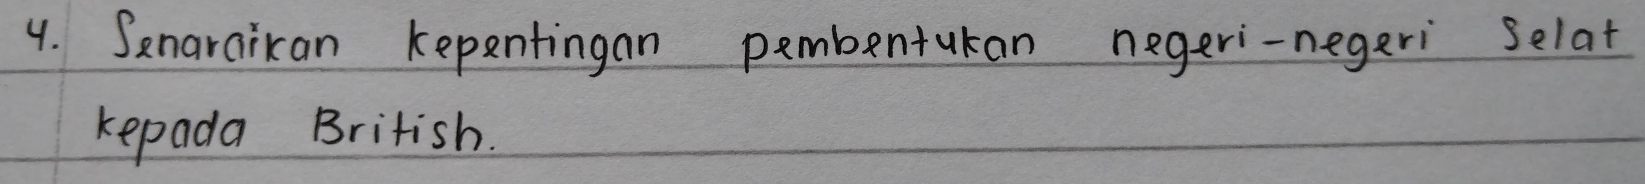 4. Senaraikan kepentingan pembentukan negeri-negeri Selat
kepada British.